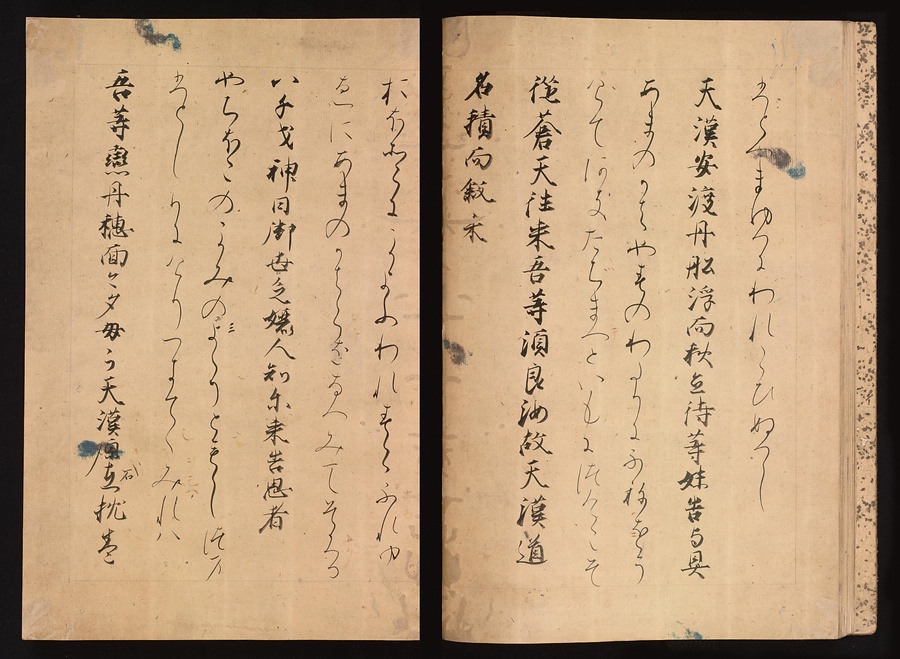 ひとつまゆゑにわれこひぬへし
天漢安渡丹船浮而秋立待等妹告与具
あまのかはやすのわたりにふねをう
けてあきたゝはまつといもにつけこそ
從蒼天往来吾等湏良汝故天漢道
名積而敘来
おほそらにかよふわれすらなれゆ
ゑにあまのかはちをなつみてそくる
八千戈神自御世乏孋人知尓来告思者
やちほこのかみのみよりともしつま
ひとしりにけりつきてしみれハ
吾等戀丹穂面今夕母可天漢原石枕巻